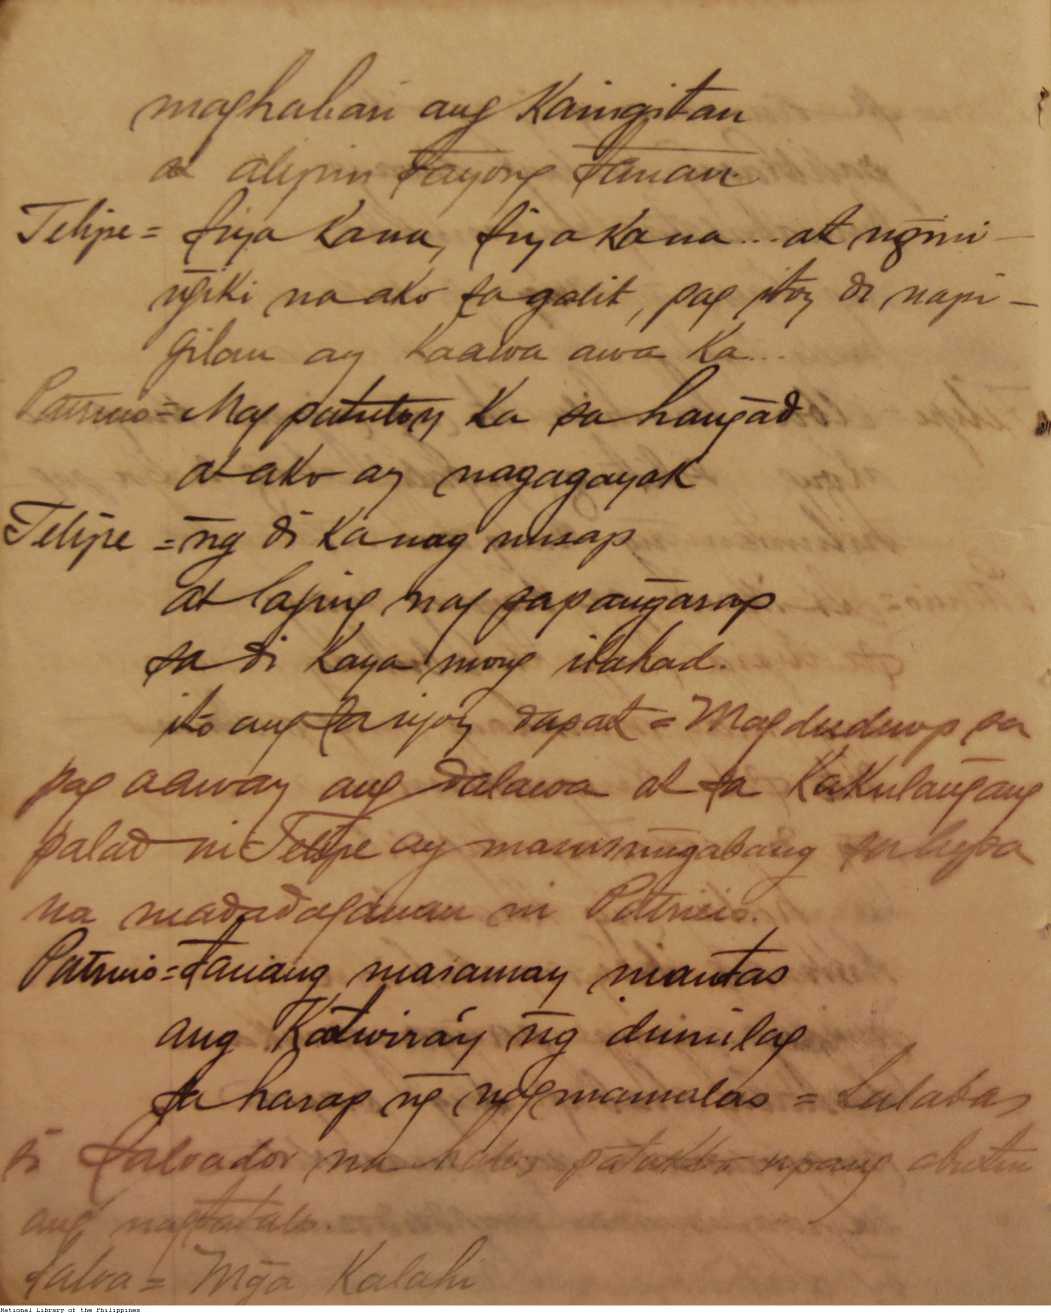 maghahari ang Kaingitan
at alipin tayong tanan.
Felipe = siya kana, siya kana... at ng̃ini-
ng̃iki na ako sa galit, pag itoy di napi-
gilan ay kaawa awa ka...
Patricio = Magpatuloy ka sa hang̃ad
at ako ay nagagayak
Felipe = ng̃ di ka nag uusap
at laging nag sasapang̃arap
sa di kaya mong ilahad.
ito ang sa iyoy dapat = Magduduop sa
pag aaway ang dalawa at sa kakulang̃ang
palad ni Felipe ay masusung̃abang sa lupa
na madadaganan ni Patricio.
Patricio = tanang masamay mautas
ang Katwiráy ng̃ dumilag
sa harap ng̃ nagmamalas = Lalabas
si Salvador na patakbo upang abutin
ang nagtatalo.
Salva = Mg̃a Kalahi
National Library of the Philippines